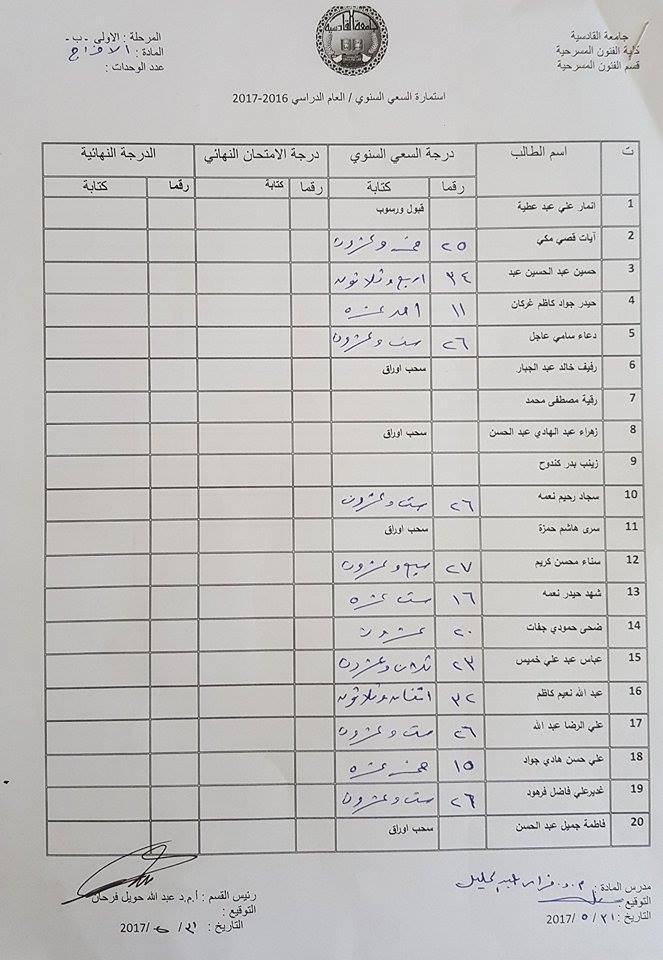 جامعة القادسية
كلية الفنون المسرحية
قسم الفنون المسرحية
جامعة القادسية
المرحلة : الاولى -ب-
المادة : الاخراج
عدد الوحدات :
استمارة السعي السنوي / العام الدراسي 2016-2017
ت اسم الطالب درجة السعي السنوي درجة الامتحان النهائي الدرجة النهائية
رقما كتابة رقما كتابة رقما كتابة
1 انمار علي عبد عطية قبول ورسوب
2 آيات قصي مكي ٢٥ خمسه وعشرون
3 حسين عبد الحسين عبد ٣٤ اربع وثلاثون
4 حيدر جواد كاظم غركان ١١ احد عشره
5 دعاء سامي عاجل ٢٦ ست وعشرون
6 رفيف خالد عبد الجبار سحب اوراق
7 رقية مصطفى محمد
8 زهراء عبد الهادي عبد الحسن سحب اوراق
9 زينب بدر كندوح
10 سجاد رحيم نعمه ٢٦ ست وعشرون
11 سرى هاشم حمزة سحب اوراق
12 سناء محسن كريم ٢٧ سبع وعشرون
13 شهد حيدر نعمه ١٦ ست عشره
14 ضحى حمودي جفات ٢٠ عشرون
15 عباس عبد علي خميس ٢٣ ثلاث وعشرون
16 عبد الله نعيم كاظم ٣٢ اثنان وثلاثون
17 علي الرضا عبد الله ٢٦ ست وعشرون
18 علي حسن هادي جواد ١٥ خمس عشره
19 غديرعلي فاضل فرهود ٢٦ ست وعشرون
20 فاطمة جميل عبد الحسن سحب اوراق
مدرس المادة : م.د.
التوقيع :
التاريخ : ٣١ / ٥ /2017
رئيس القسم : أ.م.د عبد الله حويل فرحان
التوقيع :
التاريخ : ٣١ / /2017